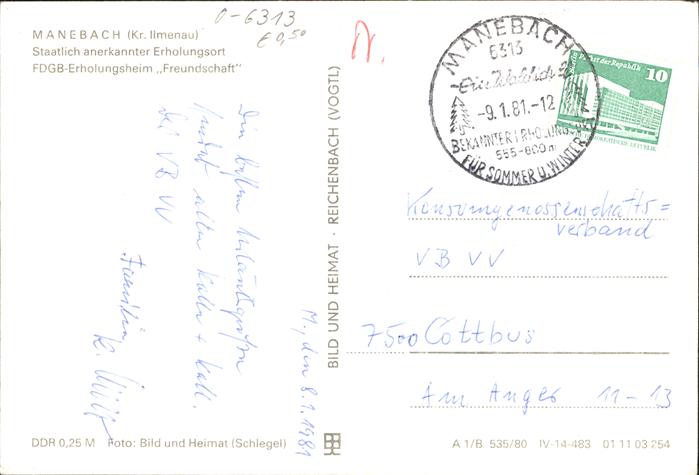 0-6313
€ 0,50
MANEBACH (Kr. Ilmenau)
Staatlich anerkannter Erholungsort
FDGB-Erholungsheim „Freundschaft"
Die besten Urlaubsgrüße
sendet allen Koll. + Koll.
bei VB VV
M., den 8.1.1981
BILD UND HEIMAT · REICHENBACH (VOGTL)
MANEBACH
6313
-9.1.81.-12
BEKANNTER ERHOLUNGSORT
555-800m
FÜR SOMMER U. WINTER
Palast der Republik
10
Konsumgenossenschafts=
verband
VB VV
7500 Cottbus
Am Anger 11-13
DDR 0,25 M Foto: Bild und Heimat (Schlegel)
A 1/B 535/80 IV-14-483 01 11 03 254